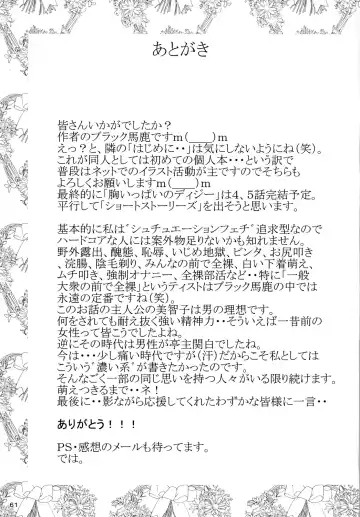 あとがき
皆さんいかがでしたか？
作者のブラック馬鹿ですｍ(＿＿)ｍ
えっ？と、隣の「はじめに・・」は気にしないようにね（笑）。
これが同人としては初めての個人本・・・という訳で
普段はネットでのイラスト活動が主ですのでそちらも
よろしくお願いしますｍ(＿＿)ｍ
最終的に「胸いっぱいのディジー」は４、５話完結予定。
平行して「ショートストーリーズ」を出そうと思います。
基本的に私は”シュチュエーションフェチ”追求型なので
ハードコアな人には案外物足りないかも知れません。
野外露出、醜態、恥辱、いじめ地獄、ビンタ、お尻叩き
、浣腸、陰毛剃り、みんなの前で全裸、白い下着萌え、
ムチ叩き、強制オナニー、全裸部活など・・特に「一般
大衆の前で全裸」というテイストはブラック馬鹿の中では
永遠の定番ですね（笑）。
このお話の主人公の美智子は男の理想です。
何をされても耐え抜く強い精神力・・そういえば一昔前の
女性って皆こうでしたよね。
逆にその時代は男性が亭主関白でしたね。
今は・・・少し痛い時代ですが（汗）だからこそ私としては
こういう”濃い系”が書きたかったのです。
そんなごく一部の同じ思いを持つ人々がいる限り続けます。
萌えつきるまで・・ネ！
最後に・・影ながら応援してくれたわずかな皆様に一言・・
ありがとう！！！
PS・感想のメールも待ってます。
では。
61